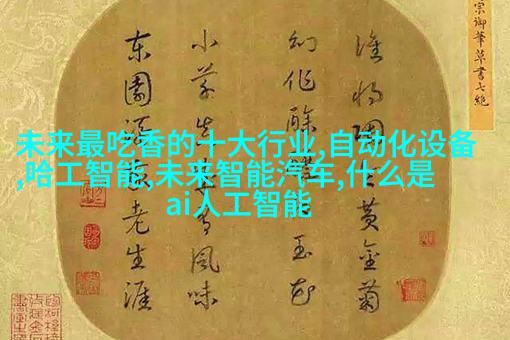 未来最吃香的十大行业,自动化设备
,哈工智能,未来智能汽车,什么是
ai人工智能
宗御筆草書七絕
誰將陶黃金菊
幻作酴玉花
小草風味
東園老生涯